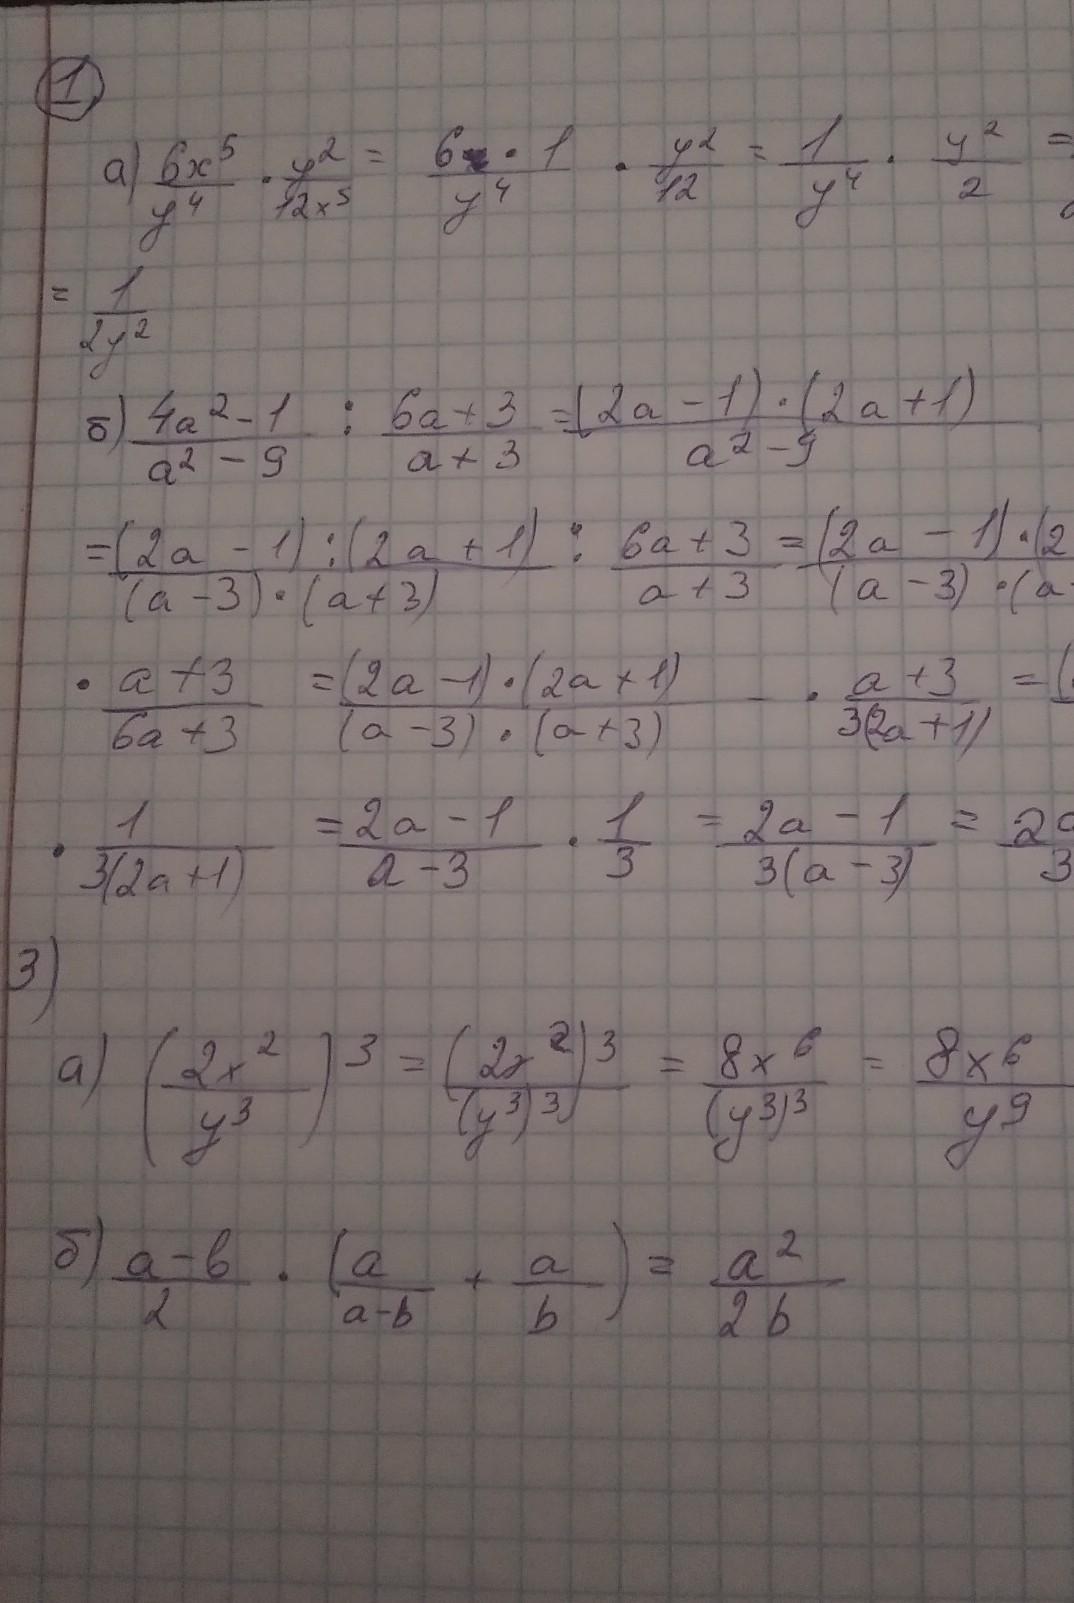 1
а) 6x⁵/y⁴ · y²/12x⁵ = 6 · 1/y⁴ · y²/12 = 1/y⁴ · y²/2 =
= 1/2y²
б) 4a² - 1/a² - 9 : 6a + 3/a + 3 = (2a - 1) · (2a + 1)/a² - 9
= (2a - 1) : (2a + 1)/(a - 3) · (a + 3) : 6a + 3/a + 3 = (2a - 1) · (2/(a - 3) · (a
· a + 3/6a + 3 = (2a - 1) · (2a + 1)/(a - 3) · (a + 3) - · a + 3/3(2a + 1) = (
· 1/3(2a + 1) = 2a - 1/a - 3 · 1/3 = 2a - 1/3(a - 3) = 2a/3
3)
а) (2x²/y³)³ = (2x²)³/(y³)³ = 8x⁶/(y³)³ = 8x⁶/y⁹
б) a - b/2 · (a/a - b + a/b) = a²/2b